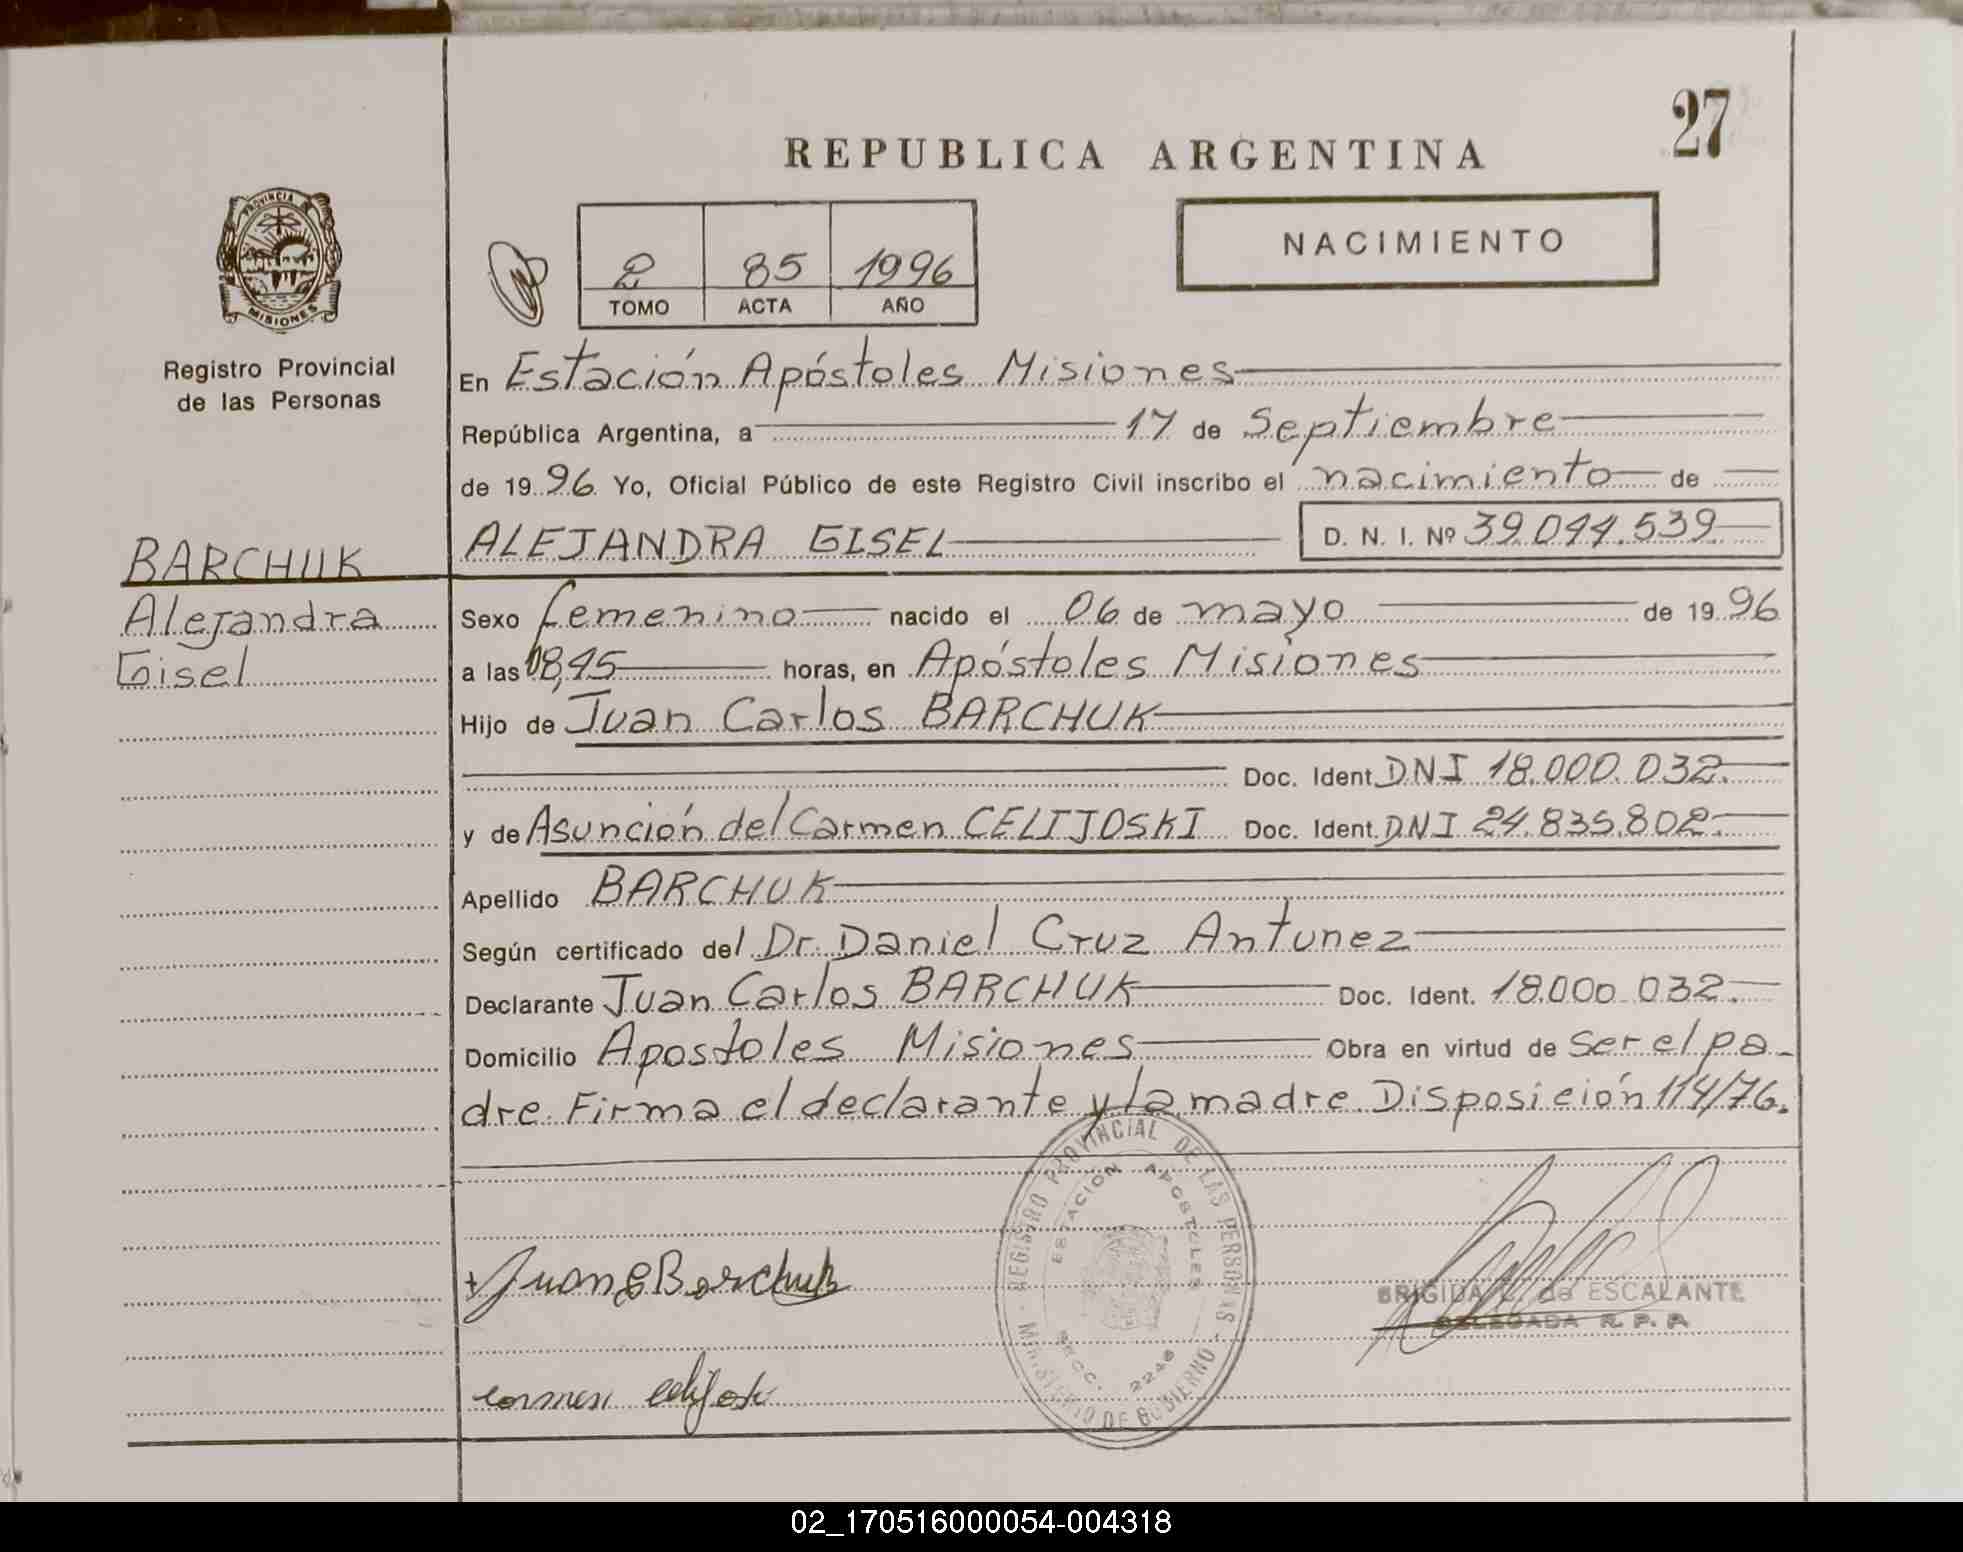 27
REPUBLICA ARGENTINA
NACIMIENTO
2 85 1996
TOMO ACTA AÑO
PROVINCIA
MISIONES
Registro Provincial
de las Personas
En Estación Apóstoles Misiones
República Argentina, a 17 de Septiembre
de 1996 Yo, Oficial Público de este Registro Civil inscribo el nacimiento de
ALEJANDRA GISEL D. N. I. Nº 39.044.539
BARCHUK
Alejandra
Gisel
Sexo femenino nacido el 06 de mayo de 1996
a las 08,45 horas, en Apóstoles Misiones
Hijo de Juan Carlos BARCHUK
Doc. Ident DNI 18.000.032.
y de Asunción del Carmen CELIJOSKI Doc. Ident. DNI 24.835.802.
Apellido BARCHUK
Según certificado del Dr. Daniel Cruz Antunez
Declarante Juan Carlos BARCHUK Doc. Ident. 18.000.032.
Domicilio Apostoles Misiones Obra en virtud de ser el pa-
dre. Firma el declarante y la madre. Disposición 114/76.
REGISTRO PROVINCIAL DE LAS PERSONAS - MINISTERIO DE GOBIERNO -
ESTACION APOSTOLES
SECC. 2246
Juan C Barchuk
BRIGIDA de ESCALANTE
DELEGADA R. P. P.
carmen celijoski
02_170516000054-004318